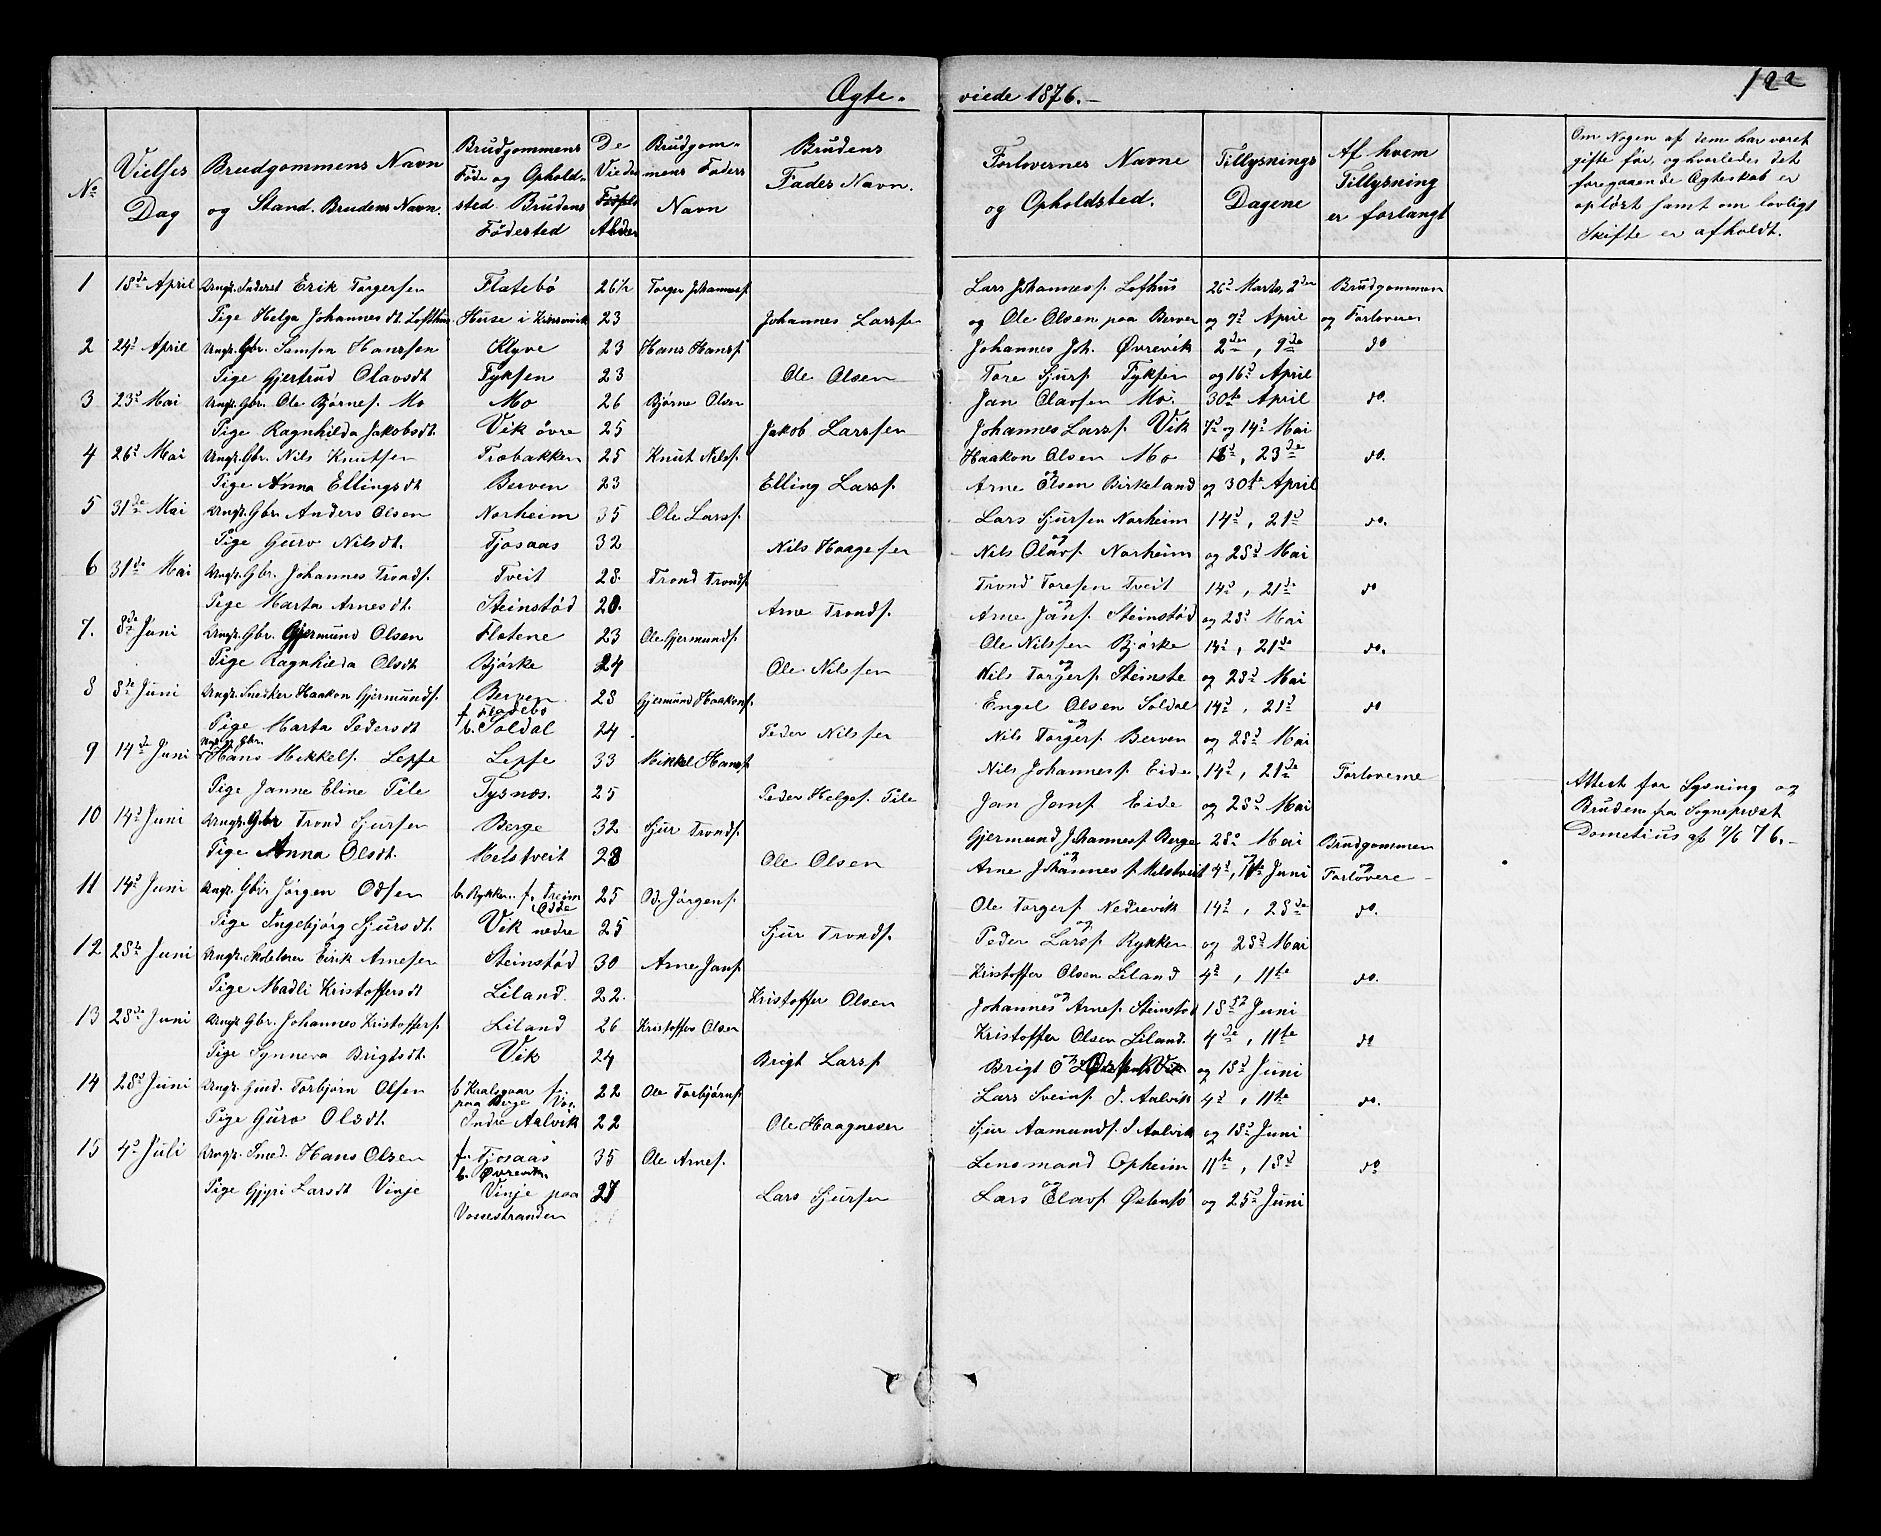 Ægte-viede 1876.-
122
No
Vielses Dag
Brudgommens Navn og Stand. Brudens Navn.
Brudgommens Føde og Opholdssted. Brudens Fødested
De Viedes Alder
Brudgommens Faders Navn
Brudens Fader Navn.
Forlovernes Navne og Opholdsted.
Tillysnings Dagene
Af hvem Tillysning er forlangt
Om Nogen af dem har været gifte før, og hvorledes det foregaaende Ægteskab er opløst samt om lovligt Skifte er afholdt.
1 18de April Ungk. Inderst Erik Torgersen Flatebø 26½ Torger Johannesf. Lars Johannesf. Lofthus 26d Marts, 2den Brudgommen
Pige Helga Johannesdt. Lofthus Huse i Kinservik 23 Johannes Larsen og Ole Olsen paa Berven og 7d April og Forlovere
2 24d April Ungk. Gbr. Samson Hanssen Klyve 23 Hans Hansf. Johannes Joh. Øvrevik 2den, 9de do
Pige Gjertrud Olavsdt Fyksen 23 Ole Olsen Tore Sjurf. Fyksen og 16d April
3 23d Mai Ungk. Gbr. Ole Bjørnef. Mo Mo 26 Bjørne Olsen Jan Olavsen Mo. 30te April do.
Pige Ragnhilda Jakobsdt. Vik øvre 25 Jakob Larssen Johannes Larsf. Vik 7d og 14d Mai
4 26d Mai Ungk. Gbr. Nils Knutsen Trobakken 25 Knut Nilsf. Haakon Olsen Mo 16d, 23de do.
Pige Anna Ellingsdt Berven 23 Elling Larsf. og Arne Olsen Birkeland og 30te April
5 31de Mai Ungk. Gbr. Anders Olsen Norheim 35 Ole Larsf. Lars Sjursen Norheim 14d, 21d do.
Pige Guro Nilsdt. Tjosaas 32 Nils Haagesen og Nils Olavf. Norheim og 28d Mai
6 31de Mai Ungk. Gbr. Johannes Trondf. Tveit 28. Trond Trondf. Trond Toresen Tveit 14d, 21de do
Pige Marta Arnesdt. Steinstød 20. Arne Trondf. og Arne Janf. Steinstød og 28d Mai
7. 8de Juni Ungk. Gbr. Gjermund Olsen Flotene 23 Ole Gjermundf. Ole Nilssen Bjørke 14d, 21de do.
Pige Ragnhilda Olsdt Bjørke 24 Ole Nilssen og Nils Torgerf. Steinstø og 28d Mai
8 8de Juni Ungk. Snekker Haakon Gjermundf. Berven 28 Gjermund Haakonf. Engel Olsen Soldal 14d, 21d do
Pige Marta Pedersdt f. b. Soldal 24. Peder Nilssen og Nils Torgerf. Berven og 28d Mai
9 14de Juni Ungk. Gbr. Hans Mikkelf. Lepse Lepse 33 Mikkel Hansf. Nils Johannesf. Eide 14d, 21de Forloverne
Pige Janne Eline Pile Tysnæs. 25 Peder Helgef. Pile Jan Janf. Eide og 28d Mai
Attest for Lysning og
Bruden fra Sogneprest
Dometius af 7/6 76.-
10 14d Juni Ungk. Gbr Trond Sjursen Berge 32 Sjur Trondf. Gjermund Johannesf. Berge 28d Mai Brudgommen
Pige Anna Olsdt. Mælstveit 28 Ole Olsen og Arne Johannesf. Melstveit 4d, og 11te Juni og Forlovere
11 14d Juni Ungk. Gbr. Jørgen Odsen b. Rykken. f. Freim Odde 25 Od Jørgenf. Ole Torgerf. Nedrevik 14d, 28de do.
Pige Ingebjørg Sjursdt. Vik nedre 25 Sjur Trondf. og Peder Larsf. Rykken og 28d Mai
12 28de Juni Ungk. Skolelærer Eirik Arnesen Steinstød 30 Arne Janf. Kristoffer Olsen Liland 4d, 11te do.
Pige Madli Kristoffersdt Liland. 22. Kristoffer Olsen og Johannes Arnef. Steinstød 18d Juni
13 28de Juni Ungk. Gbr. Johannes Kristofferf. Liland 26 Kristoffer Olsen Kristoffer Olsen Liland. 4de, 11te do
Pige Synneva Brigtsdt. Vik 24 Brigt Larsf. og Brigt Vik og 18d Juni
14 28d Juni Ungk. Torbjørn Olsen b. paa Berge f. Vos. 22 Ole Torbjørnf. Lars Sveinf. I. Aalvik 4d, 11te do.
Pige Guro Olsdt. Indre Aalvik 22 Ole Haagnesen Sjur Aamundf. I Aalvik og 18d Juni
15 4d Juli Ungk. Smed. Hans Olsen f. Tjosaas b. Øvrevik. 35 Ole Arnef. Lensmand Opheim 11te, 18d do
Pige Gjyri Larsdt Vinje Vinje paa Vossestranden 27 Lars Sjursen og Lars Olavf. Østensø og 25d Juni